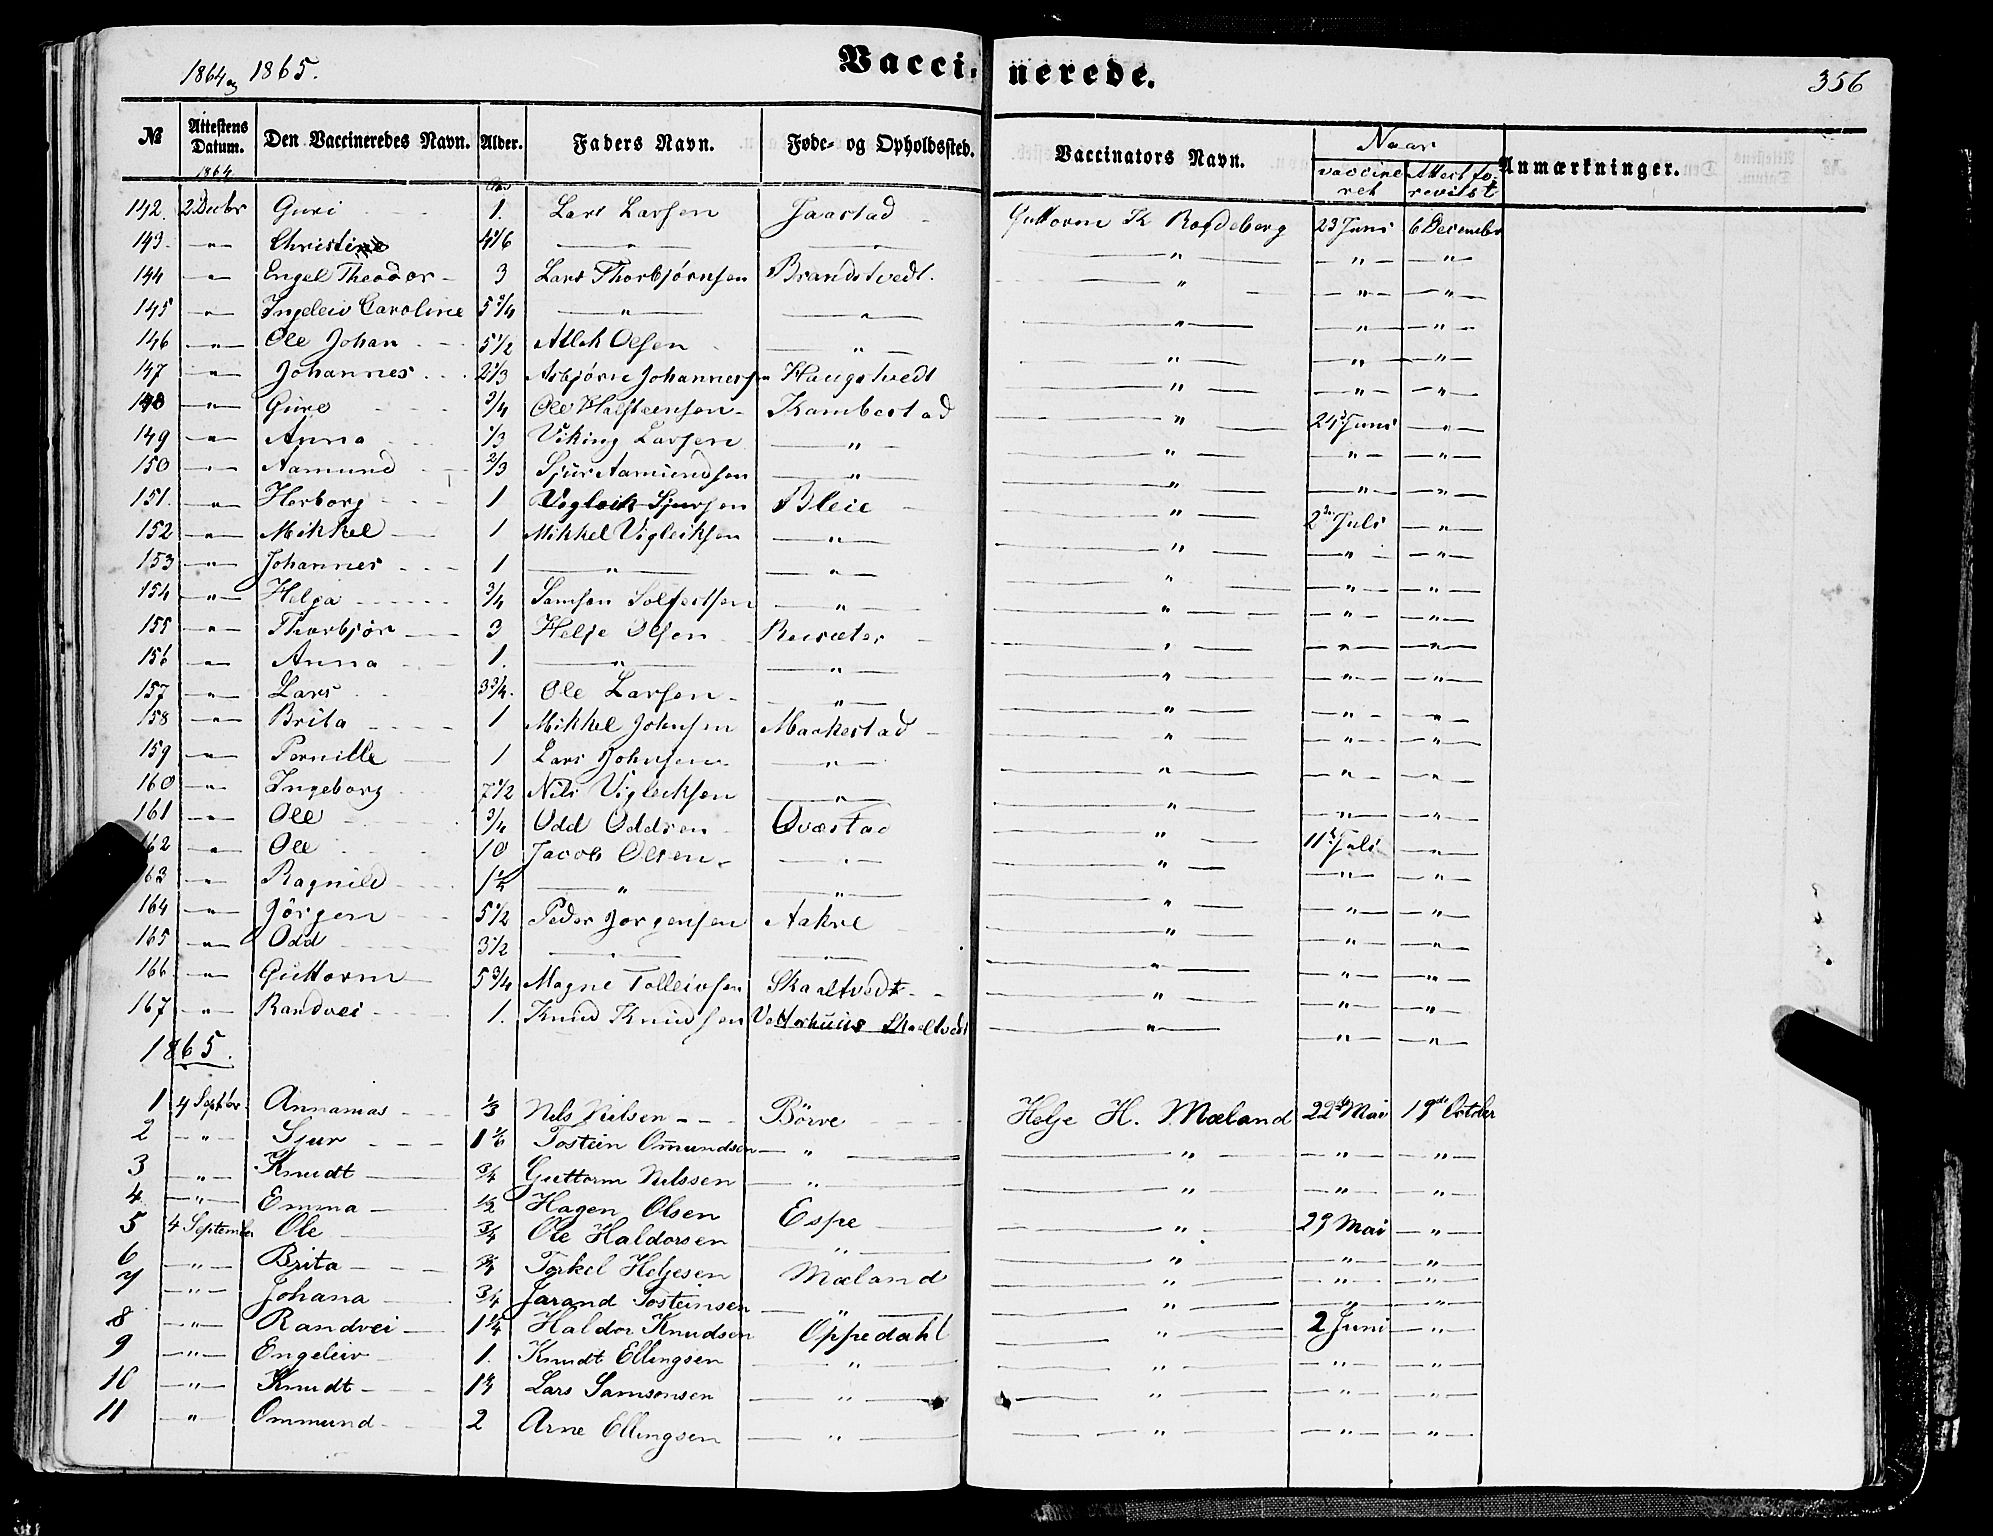 1864 og 1865. Vaccinerede. 356
№ Attestens Datum. Den Vaccineredes Navn. Alder. Faders Navn. Føde- og Opholdssted. Vaccinators Navn. Naar Anmærkninger.
1864 vaccineret Attest forevist
142. 2 Decbr Guri 1. Lars Larsen Jaastad Guttorm K 23 Juni 6 December
143. " Christine 4 1/6 " " " " "
144 " Engel Theodor 3 Lars Thorbjørnsen Brandstvedt. " " "
145 " Ingeleiv Caroline 5 3/4 " " " " "
146 " Ole Johan 5 1/2 Atlak Olsen " " " "
147 " Johannes 2 1/3 Asbjørn Johannessen Haugstvedt " " "
148 " Guro 3/4 Ole Halsteensen Kambestad " 24 Juni "
149 " Anna 1/3 Viking Larsen " " " "
150 " Aamund 2/3 Sjur Aamundsen " " " "
151. " Herborg 1 Vigleik Sjursen Bleie " 2 Juli "
152 " Mikkel 1 Mikkel Vigleiksen " " " "
153 " Johannes 1 " " " " "
154 " Helga 3/4 Samson Solfestsen " " " "
155 " Thorbjør 3 Helje Olsen Reisæter " " "
156 " Anna 1. " " " " "
157 " Lars 3 3/4. Ole Larsen " " " "
158 " Brita 1 Mikkel Johnsen Maakestad " " "
159 " Pernille 1 Lars Johnsen " " " "
160 " Ingeborg 7 1/2 Nils Vigleiksen " " " "
161 " Ole 3/4 Odd Oddsen Qvæstad " 11 Juli "
162 " Ole 10 Jacob Olsen " " " "
163 " Ragnild 1 1/4 " " " " "
164 " Jörgen 5 1/2 Peder Jorgensen Aakre " " "
165 " Odd 3 1/2 " " " " "
166 " Guttorm 5 3/4 Magne Tolleivsen Skaaltvedt " " "
167 " Randvei 1. Knud Knudsen Skaaltvedt " " "
1865.
1 4 Septbr Annanias 1/3 Nils Nilsen Börve Helje H. Mæland 22de Mai 19de October
2 " Sjur 1 1/6 Tostein Omundsen " " " "
3 " Knudt 3/4 Guttorm Nilssen " " " "
4. " Emma 1/2 Hagen Olsen Espe " 29 Mai "
5 4 September Ole 3/4 Ole Haldorsen " " " "
6 " Brita 3/4 Torkel Heljesen Mæland " " "
7 " Johana 3/4 Jarand Tosteinsen " " " "
8 " Randvei 1 1/4 Haldor Knudsen Oppedahl " 2 Juni "
9 " Engeleiv 1. Knudt Ellingsen " " " "
10 " Knudt Lars Samsonsen " " " "
11 " Ommund 2 Arne Ellingsen " " " "